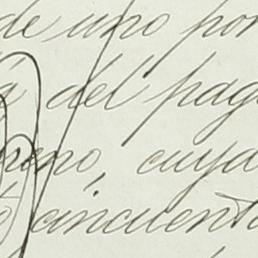 de uno por
del pag
cuya
cincuenta